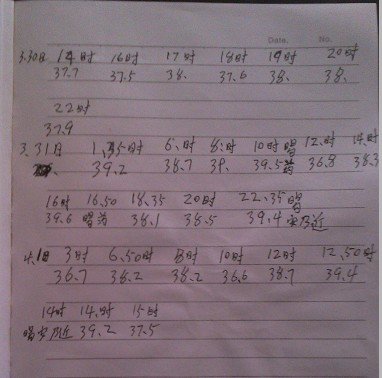 Date. No.
3.30日 14时 16时 17时 18时 19时 20时
37.7 37.5 38. 37.6 38. 38.
22时
37.9
3.31日 1.35时 6.时 8.时 10时喝 12.时 14.时
39.2 38.7 39. 39.5药 36.8 38.3
16时 16.50 18.35 20时 22.35喝
39.6 喝药 38.1 38.5 39.4 安乃近
4.1日 3时 6.50时 8时 10时 12时 12.50时
36.7 38.2 38.2 36.6 38.7 39.4
14时 14.时 15时
喝安乃近 39.2 37.5